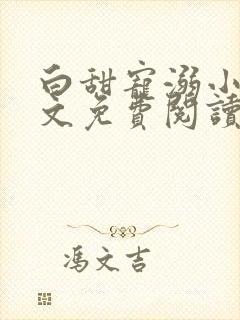 白甜寵溺小
文免費閱讀
馮文吉